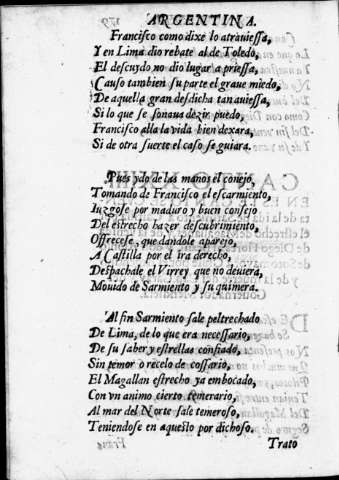 ARGENTINA.
Francisco como dixe lo atrauiessa,
Y en Lima dio rebate al de Toledo,
El descuydo no dio lugar a priessa,
Causo tambien su parte el graue miedo,
De aquella gran desdicha tan auiessa,
Si lo que se sonaua dezir puedo,
Francisco alla la vida bien dexara,
Si de otra suerte el caso se guiara.
Pues ydo de las manos el conejo,
Tomando de Francisco el escarmiento,
Iuzgose por maduro y buen consejo
Del estrecho hazer descubrimiento,
Offrecese, que dandole aparejo,
A Castilla por el ira derecho,
Despachale el Virrey que no deuiera,
Mouido de Sarmiento y su quimera.
Al fin Sarmiento sale peltrechado
De Lima, de lo que era necessario,
De su saber y estrellas confiado,
Sin temor o recelo de cossario,
El Magallan estrecho ya embocado,
Con vn animo cierto temerario,
Al mar del Norte sale temeroso,
Teniendose en aquesto por dichoso.
Trato